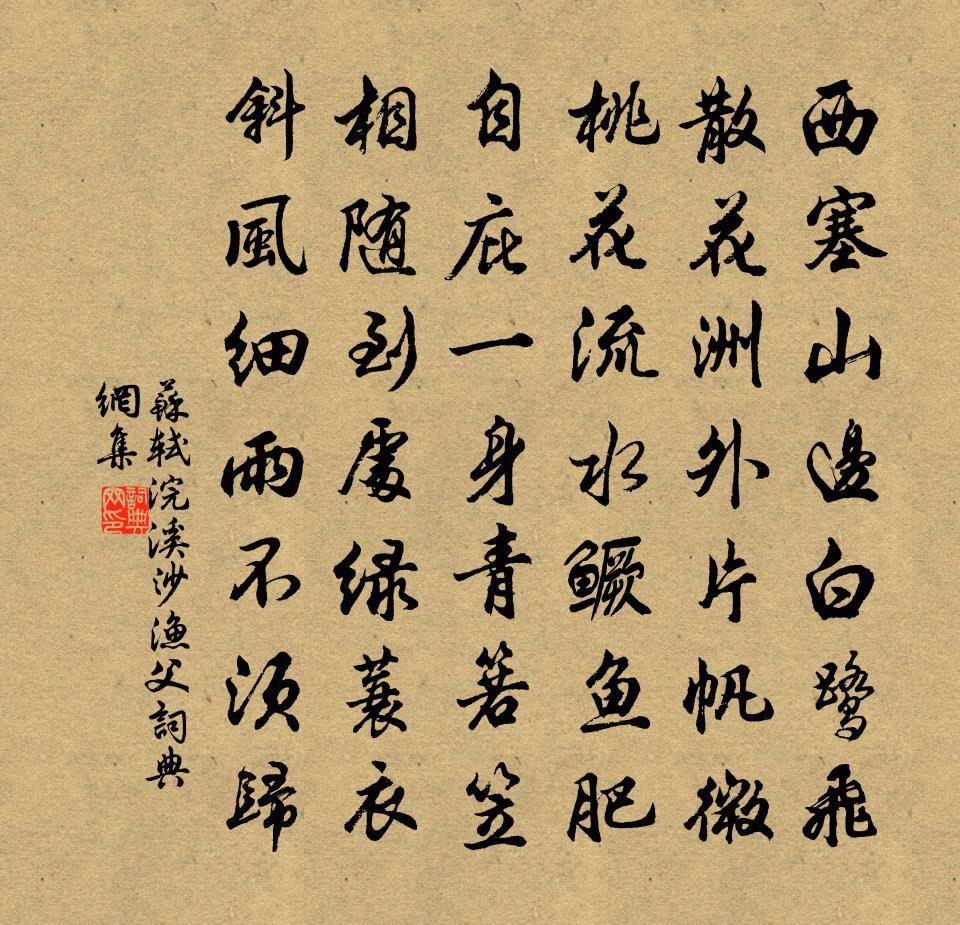 西塞山邊白鹭飛
散花洲外片帆微
桃花流水鳜鱼肥
自庇一身青箬笠
相随到處绿蓑衣
斜風细雨不須歸
蘇轼浣溪沙漁父詞典
網集
詞典
网印